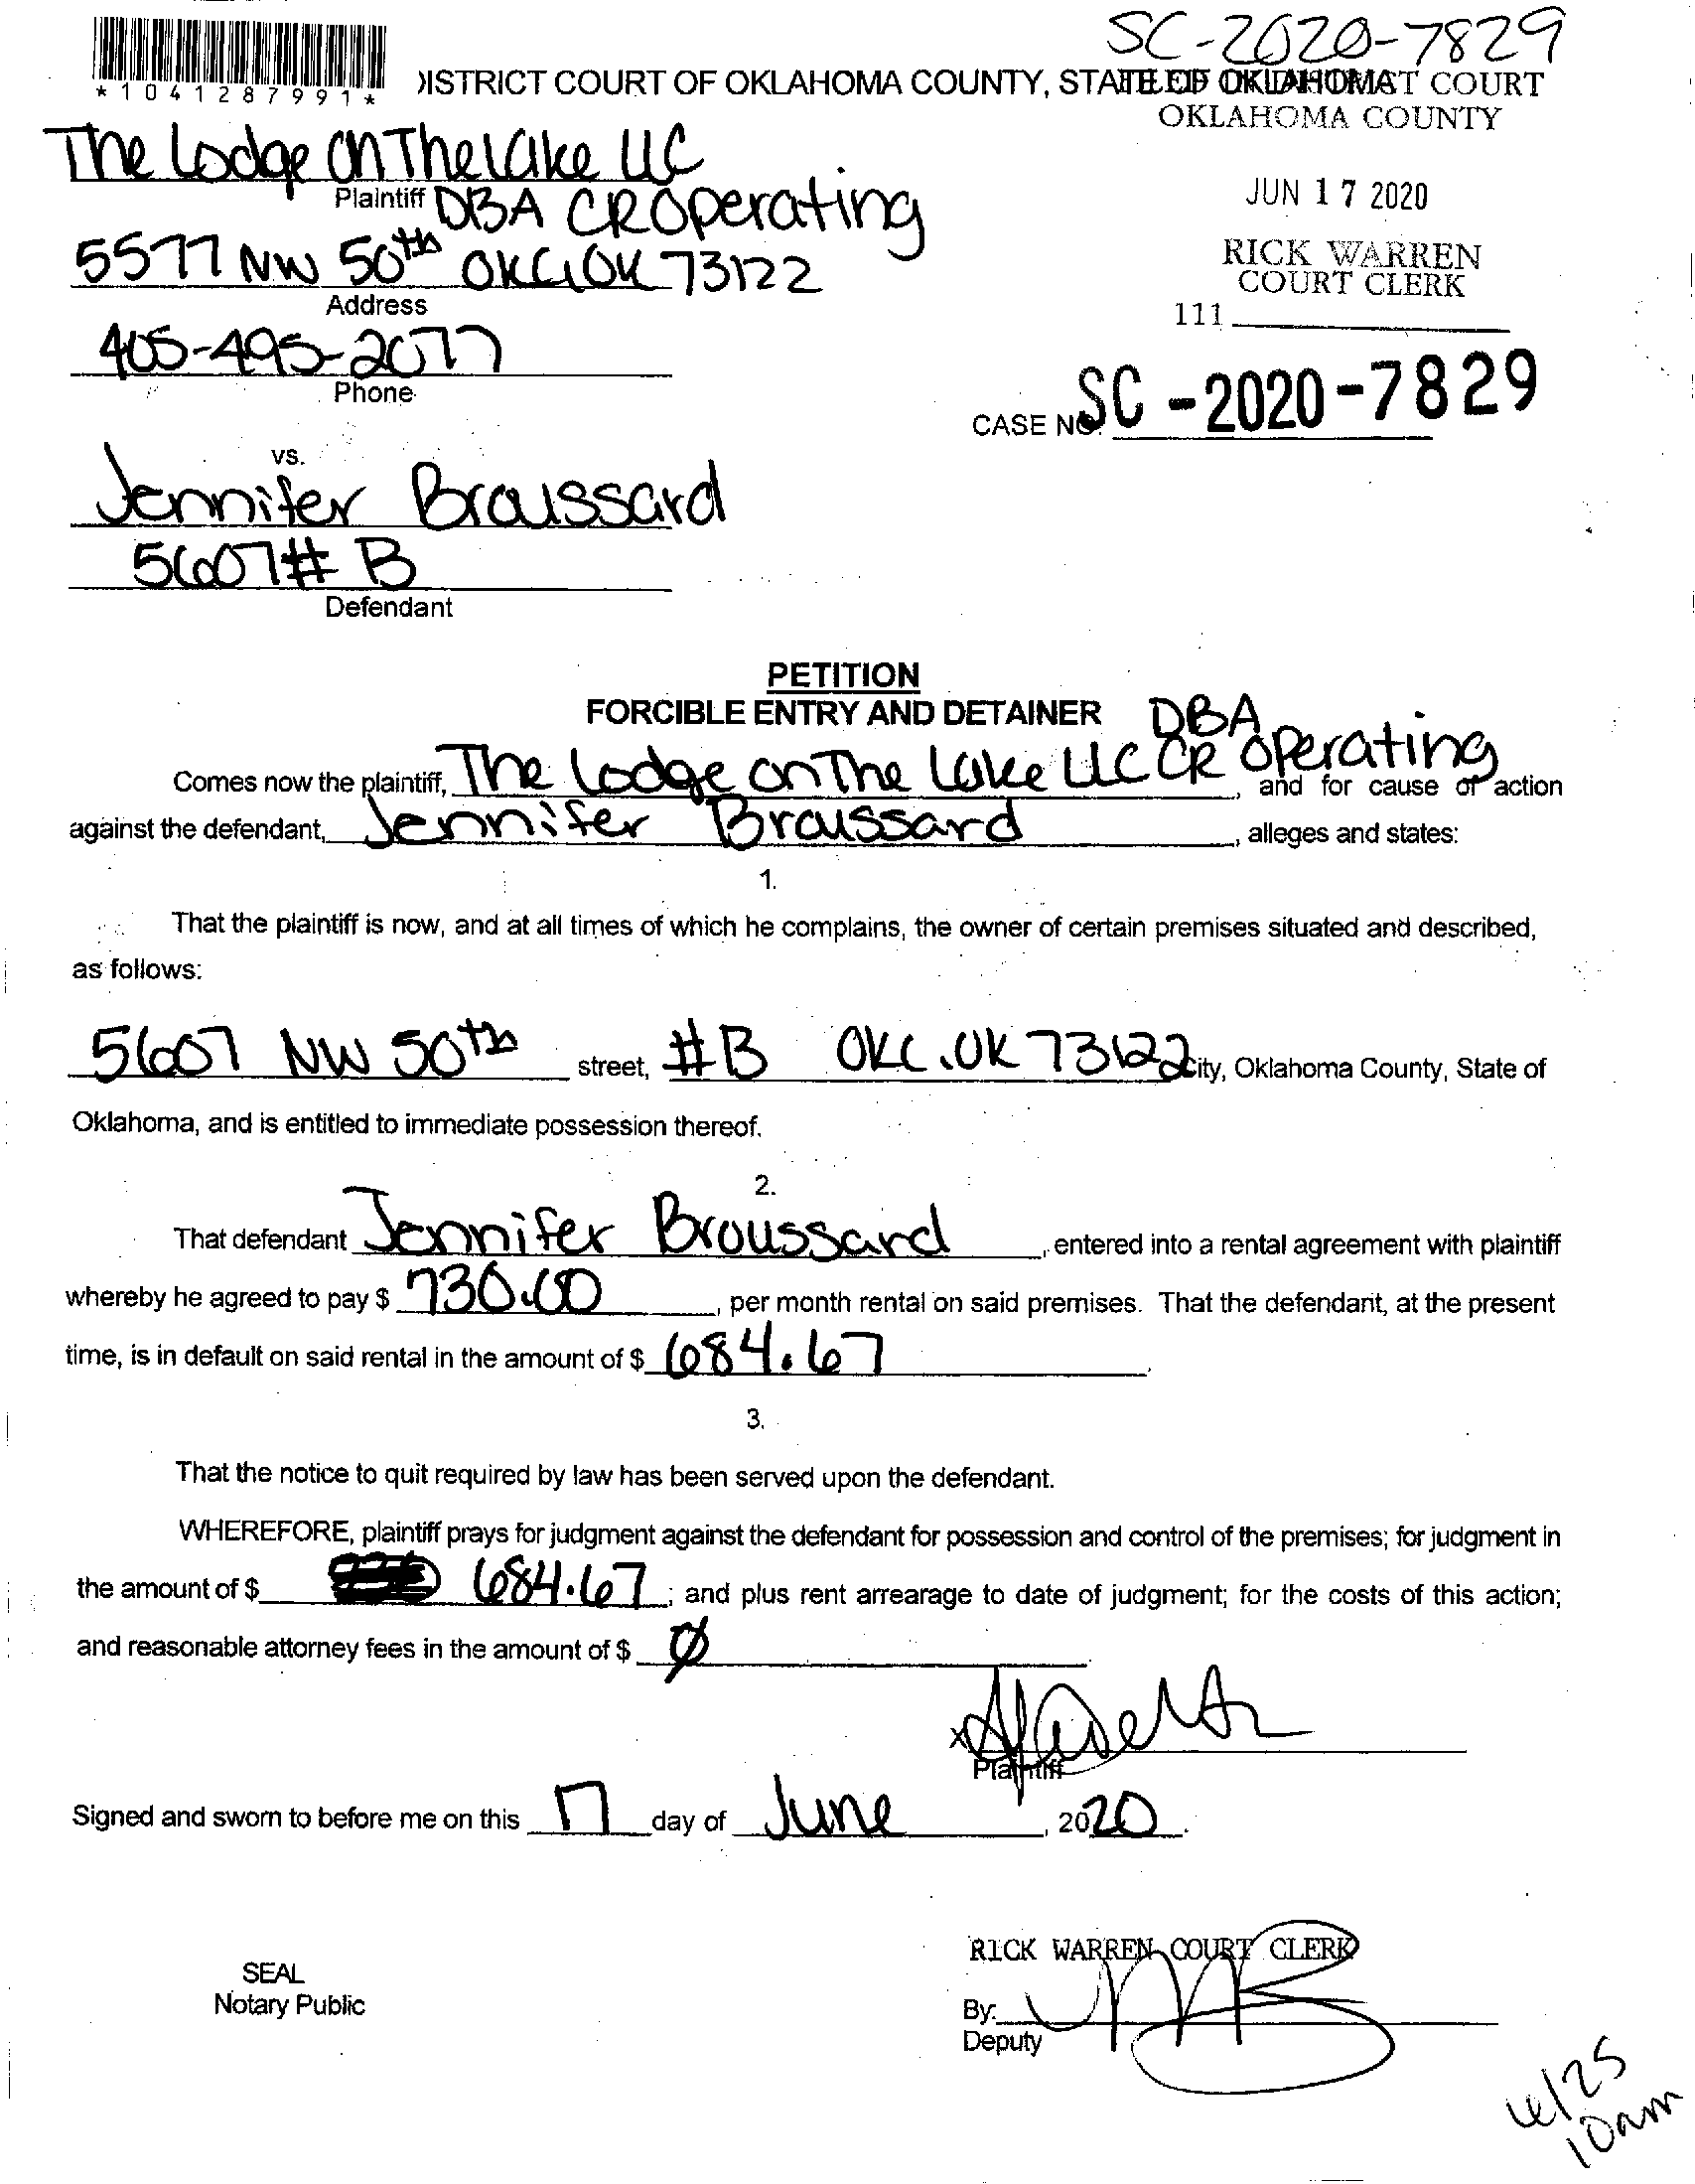 SC-2020-7829
*1041287991*
DISTRICT COURT OF OKLAHOMA COUNTY, STATE OF OKLAHOMA
FILED IN DISTRICT COURT
OKLAHOMA COUNTY
JUN 17 2020
RICK WARREN
COURT CLERK
111
The Lodge On The lake LLC
Plaintiff DBA CR Operating
5577 NW 50th OKC, OK 73122
Address
405-495-2077
Phone
CASE NO. SC-2020-7829
vs.
Jennifer Broussard
5607 # B
Defendant
PETITION
FORCIBLE ENTRY AND DETAINER
Comes now the plaintiff, The Lodge on The Lake LLC DBA CR Operating, and for cause of action
against the defendant, Jennifer Broussard, alleges and states:
1.
That the plaintiff is now, and at all times of which he complains, the owner of certain premises situated and described,
as follows:
5607 NW 50th street, #B OKC, OK 73122 City, Oklahoma County, State of
Oklahoma, and is entitled to immediate possession thereof.
2.
That defendant Jennifer Broussard, entered into a rental agreement with plaintiff
whereby he agreed to pay $ 730.00, per month rental on said premises. That the defendant, at the present
time, is in default on said rental in the amount of $ 684.67.
3.
That the notice to quit required by law has been served upon the defendant.
WHEREFORE, plaintiff prays for judgment against the defendant for possession and control of the premises; for judgment in
the amount of $ 684.67; and plus rent arrearage to date of judgment; for the costs of this action;
and reasonable attorney fees in the amount of $ Ø
x
Plaintiff
Signed and sworn to before me on this 17 day of June, 2020.
RICK WARREN COURT CLERK
SEAL
Notary Public
By:
Deputy
6/25
10am